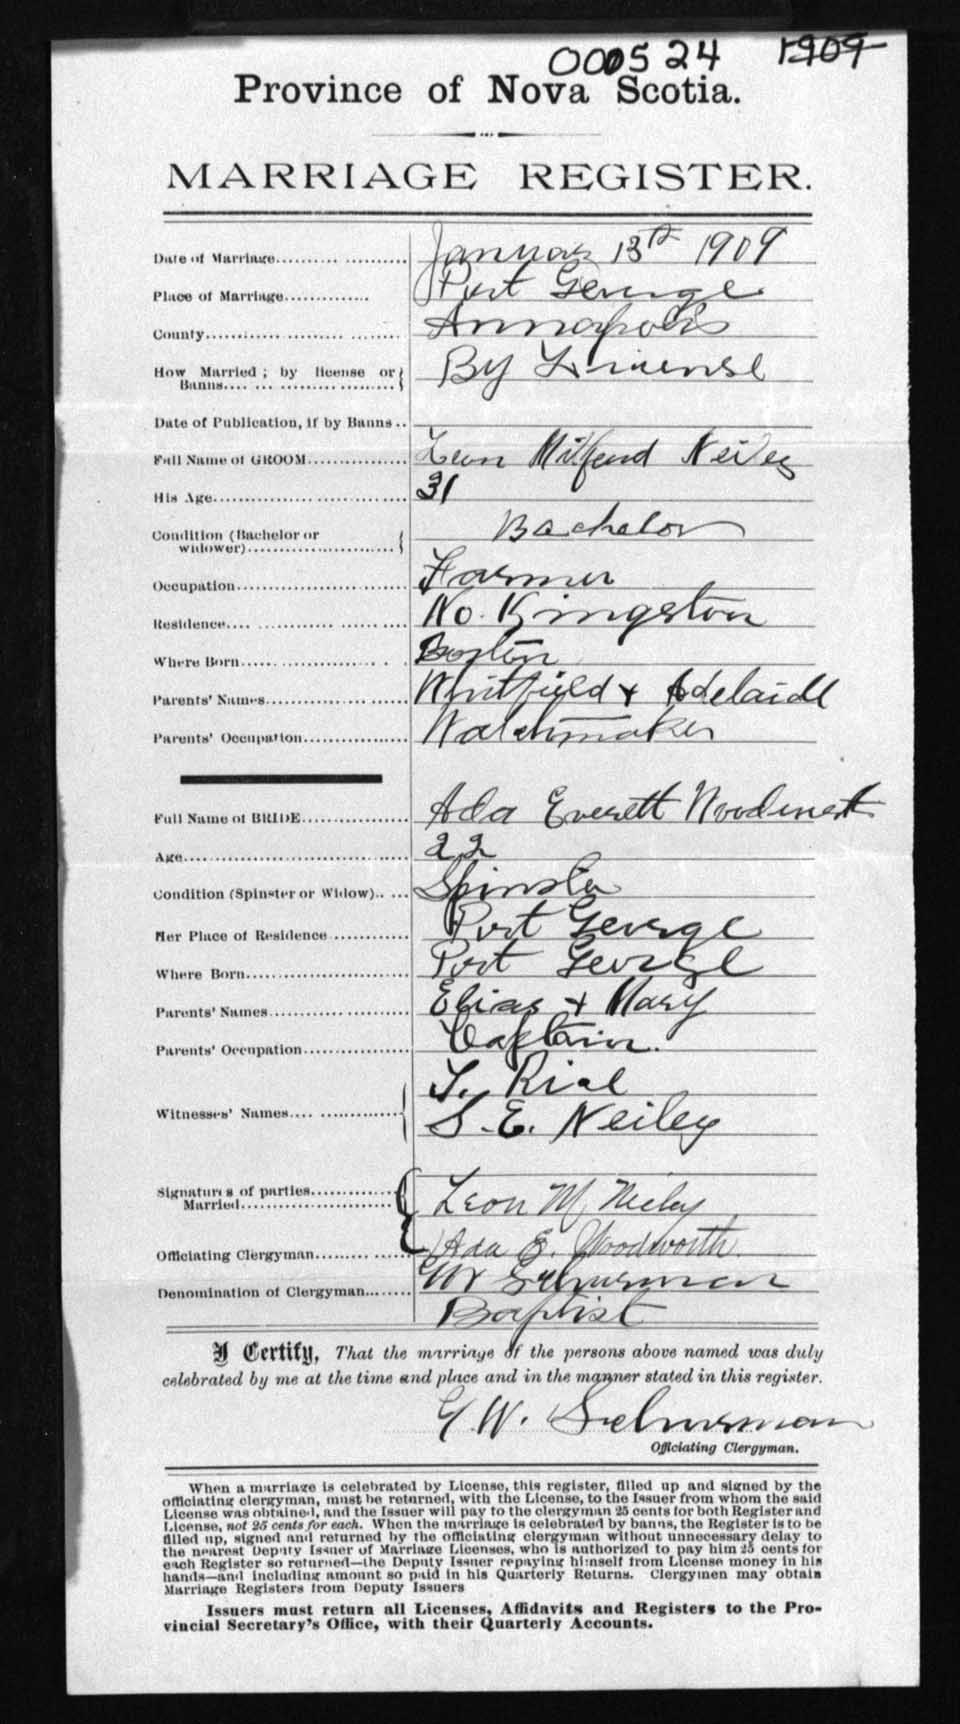 000524 1909
Province of Nova Scotia.
MARRIAGE REGISTER.
Date of Marriage.................. January 13th 1909
Place of Marriage.............. Port George
County.................. Annapolis
How Married ; by license or By License
Banns..................
Date of Publication, if by Banns ..
Full Name of GROOM............... Leon Milford Neiley
His Age.................. 31
Condition (Bachelor or Bachelor
widower)..................
Occupation.................. Farmer
Residence.................. No. Kingston
Where Born.................. Boston
Parents' Names.................. Whitfield & Adelaide
Parents' Occupation............... Watchmaker
Full Name of BRIDE................ Ada Everett Woodworth
Age.................. 22
Condition (Spinster or Widow)..... Spinster
Her Place of Residence ............ Port George
Where Born.................. Port George
Parents' Names.................. Elias + Mary
Parents' Occupation............... Captain.
Rial
Witnesses' Names.................. S. E. Neiley
Signatures of parties............... Leon M. Neily
Married..................
Officiating Clergyman............... Ada E. Woodworth.
Denomination of Clergyman........ Schurman
Baptist
I Certify, That the marriage of the persons above named was duly
celebrated by me at the time and place and in the manner stated in this register.
G. W. Schurman
Officiating Clergyman.
When a marriage is celebrated by License, this register, filled up and signed by the
officiating clergyman, must be returned, with the License, to the Issuer from whom the said
License was obtained, and the Issuer will pay to the clergyman 25 cents for both Register and
License, not 25 cents for each. When the marriage is celebrated by banns, the Register is to be
filled up, signed and returned by the officiating clergyman without unnecessary delay to
the nearest Deputy Issuer of Marriage Licenses, who is authorized to pay him 25 cents for
each Register so returned—the Deputy Issuer repaying himself from License money in his
hands—and including amount so paid in his Quarterly Returns. Clergymen may obtain
Marriage Registers from Deputy Issuers
Issuers must return all Licenses, Affidavits and Registers to the Pro-
vincial Secretary's Office, with their Quarterly Accounts.